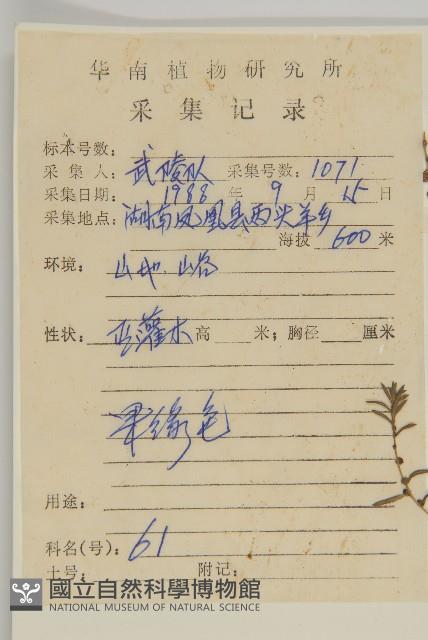 华南植物研究所
采集记录
标本号数:
采集人: 武陵队 采集号数: 1071
采集日期: 1988 年 9 月 15 日
采集地点: 湖南凤凰县两头羊乡
海拔 600 米
环境: 山地 山谷
性状: 灌木 高 米; 胸径 厘米
果绿色
用途:
科名(号): 61
土号: 附记:
國立自然科學博物館
NATIONAL MUSEUM OF NATURAL SCIENCE